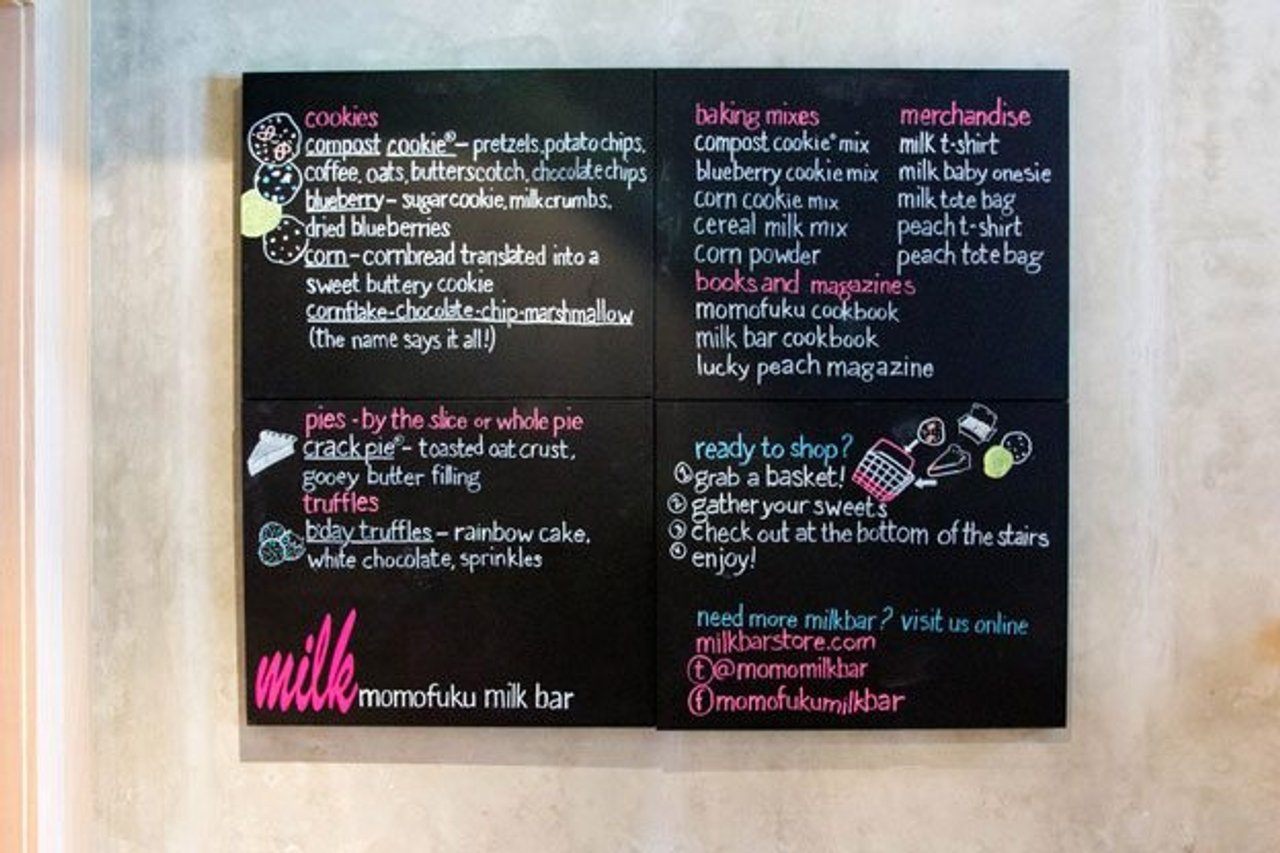 cookies
compost cookie® - pretzels, potato chips,
coffee, oats, butterscotch, chocolate chips
blueberry - sugar cookie, milk crumbs,
dried blueberries
corn - cornbread translated into a
sweet buttery cookie
cornflake-chocolate-chip-marshmallow
(the name says it all!)
baking mixes
compost cookie® mix
blueberry cookie mix
corn cookie mix
cereal milk mix
corn powder
merchandise
milk t-shirt
milk baby onesie
milk tote bag
peach t-shirt
peach tote bag
books and magazines
momofuku cookbook
milk bar cookbook
lucky peach magazine
pies - by the slice or whole pie
crack pie® - toasted oat crust,
gooey butter filling
truffles
b'day truffles - rainbow cake,
white chocolate, sprinkles
milk momofuku milk bar
ready to shop?
1 grab a basket!
2 gather your sweets
3 check out at the bottom of the stairs
4 enjoy!
need more milkbar? visit us online
milkbarstore.com
t @momomilkbar
f momofukumilkbar